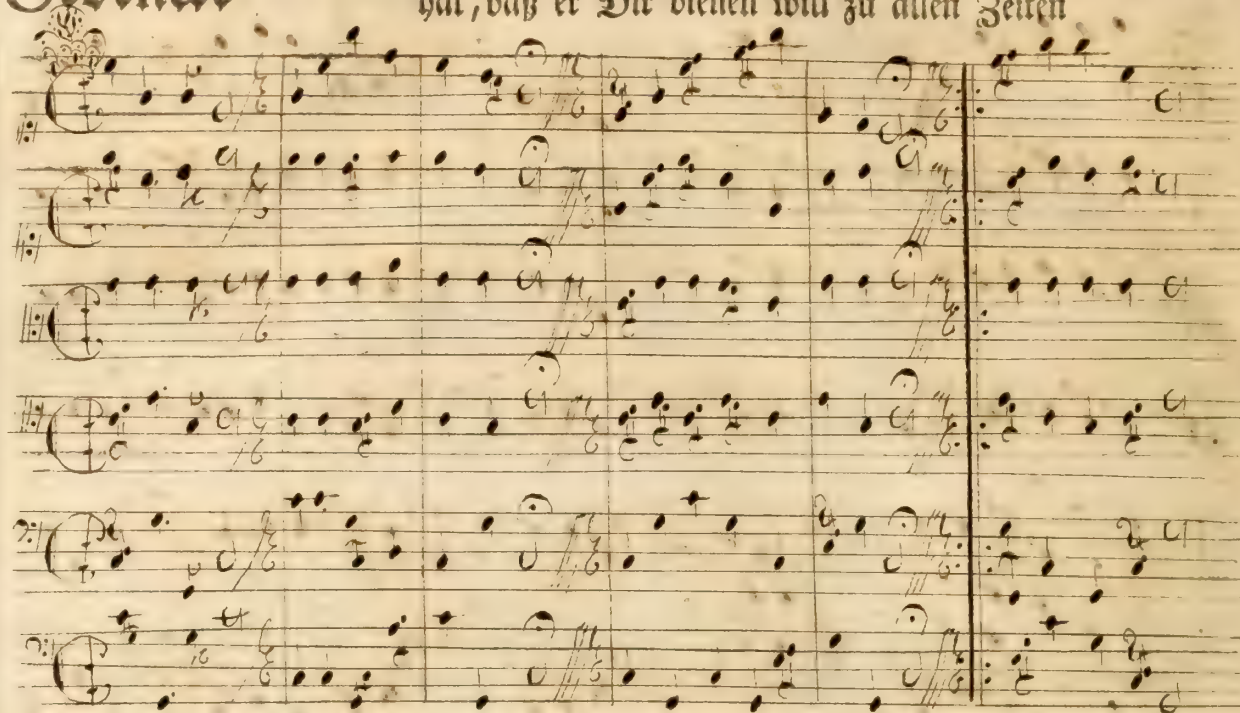 hat, daß er Dir dienen will zu allen Zeiten